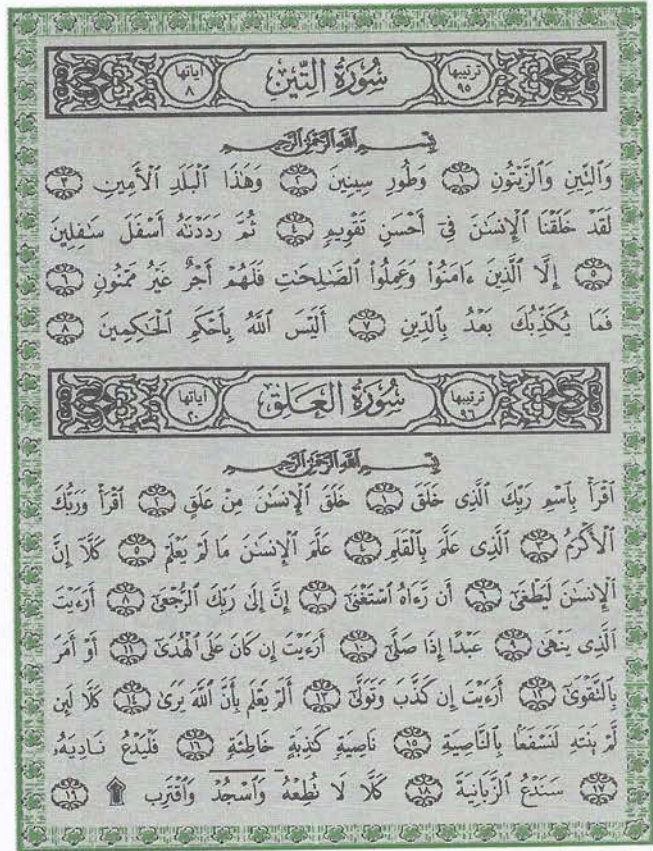 ترتيبها ٩٥ سُورَةُ التِّينِ اياتها ٨
بِسْمِ ٱللَّهِ ٱلرَّحْمَٰنِ ٱلرَّحِيمِ
وَٱلتِّينِ وَٱلزَّيْتُونِ ١ وَطُورِ سِينِينَ ٢ وَهَٰذَا ٱلْبَلَدِ ٱلْأَمِينِ ٣
لَقَدْ خَلَقْنَا ٱلْإِنسَٰنَ فِىٓ أَحْسَنِ تَقْوِيمٍ ٤ ثُمَّ رَدَدْنَٰهُ أَسْفَلَ سَٰفِلِينَ
٥ إِلَّا ٱلَّذِينَ ءَامَنُوا۟ وَعَمِلُوا۟ ٱلصَّٰلِحَٰتِ فَلَهُمْ أَجْرٌ غَيْرُ مَمْنُونٍ ٦
فَمَا يُكَذِّبُكَ بَعْدُ بِٱلدِّينِ ٧ أَلَيْسَ ٱللَّهُ بِأَحْكَمِ ٱلْحَٰكِمِينَ ٨
ترتيبها ٩٦ سُورَةُ العَلَقِ اياتها ٢٠
بِسْمِ ٱللَّهِ ٱلرَّحْمَٰنِ ٱلرَّحِيمِ
ٱقْرَأْ بِٱسْمِ رَبِّكَ ٱلَّذِى خَلَقَ ١ خَلَقَ ٱلْإِنسَٰنَ مِنْ عَلَقٍ ٢ ٱقْرَأْ وَرَبُّكَ
ٱلْأَكْرَمُ ٣ ٱلَّذِى عَلَّمَ بِٱلْقَلَمِ ٤ عَلَّمَ ٱلْإِنسَٰنَ مَا لَمْ يَعْلَمْ ٥ كَلَّآ إِنَّ
ٱلْإِنسَٰنَ لَيَطْغَىٰٓ ٦ أَن رَّءَاهُ ٱسْتَغْنَىٰٓ ٧ إِنَّ إِلَىٰ رَبِّكَ ٱلرُّجْعَىٰٓ ٨ أَرَءَيْتَ
ٱلَّذِى يَنْهَىٰ ٩ عَبْدًا إِذَا صَلَّىٰٓ ١٠ أَرَءَيْتَ إِن كَانَ عَلَى ٱلْهُدَىٰٓ ١١ أَوْ أَمَرَ
بِٱلتَّقْوَىٰٓ ١٢ أَرَءَيْتَ إِن كَذَّبَ وَتَوَلَّىٰٓ ١٣ أَلَمْ يَعْلَم بِأَنَّ ٱللَّهَ يَرَىٰ ١٤ كَلَّا لَئِن
لَّمْ يَنتَهِ لَنَسْفَعًۢا بِٱلنَّاصِيَةِ ١٥ نَاصِيَةٍ كَٰذِبَةٍ خَاطِئَةٍ ١٦ فَلْيَدْعُ نَادِيَهُۥ
١٧ سَنَدْعُ ٱلزَّبَانِيَةَ ١٨ كَلَّا لَا تُطِعْهُ وَٱسْجُدْ وَٱقْتَرِب ۩ ١٩